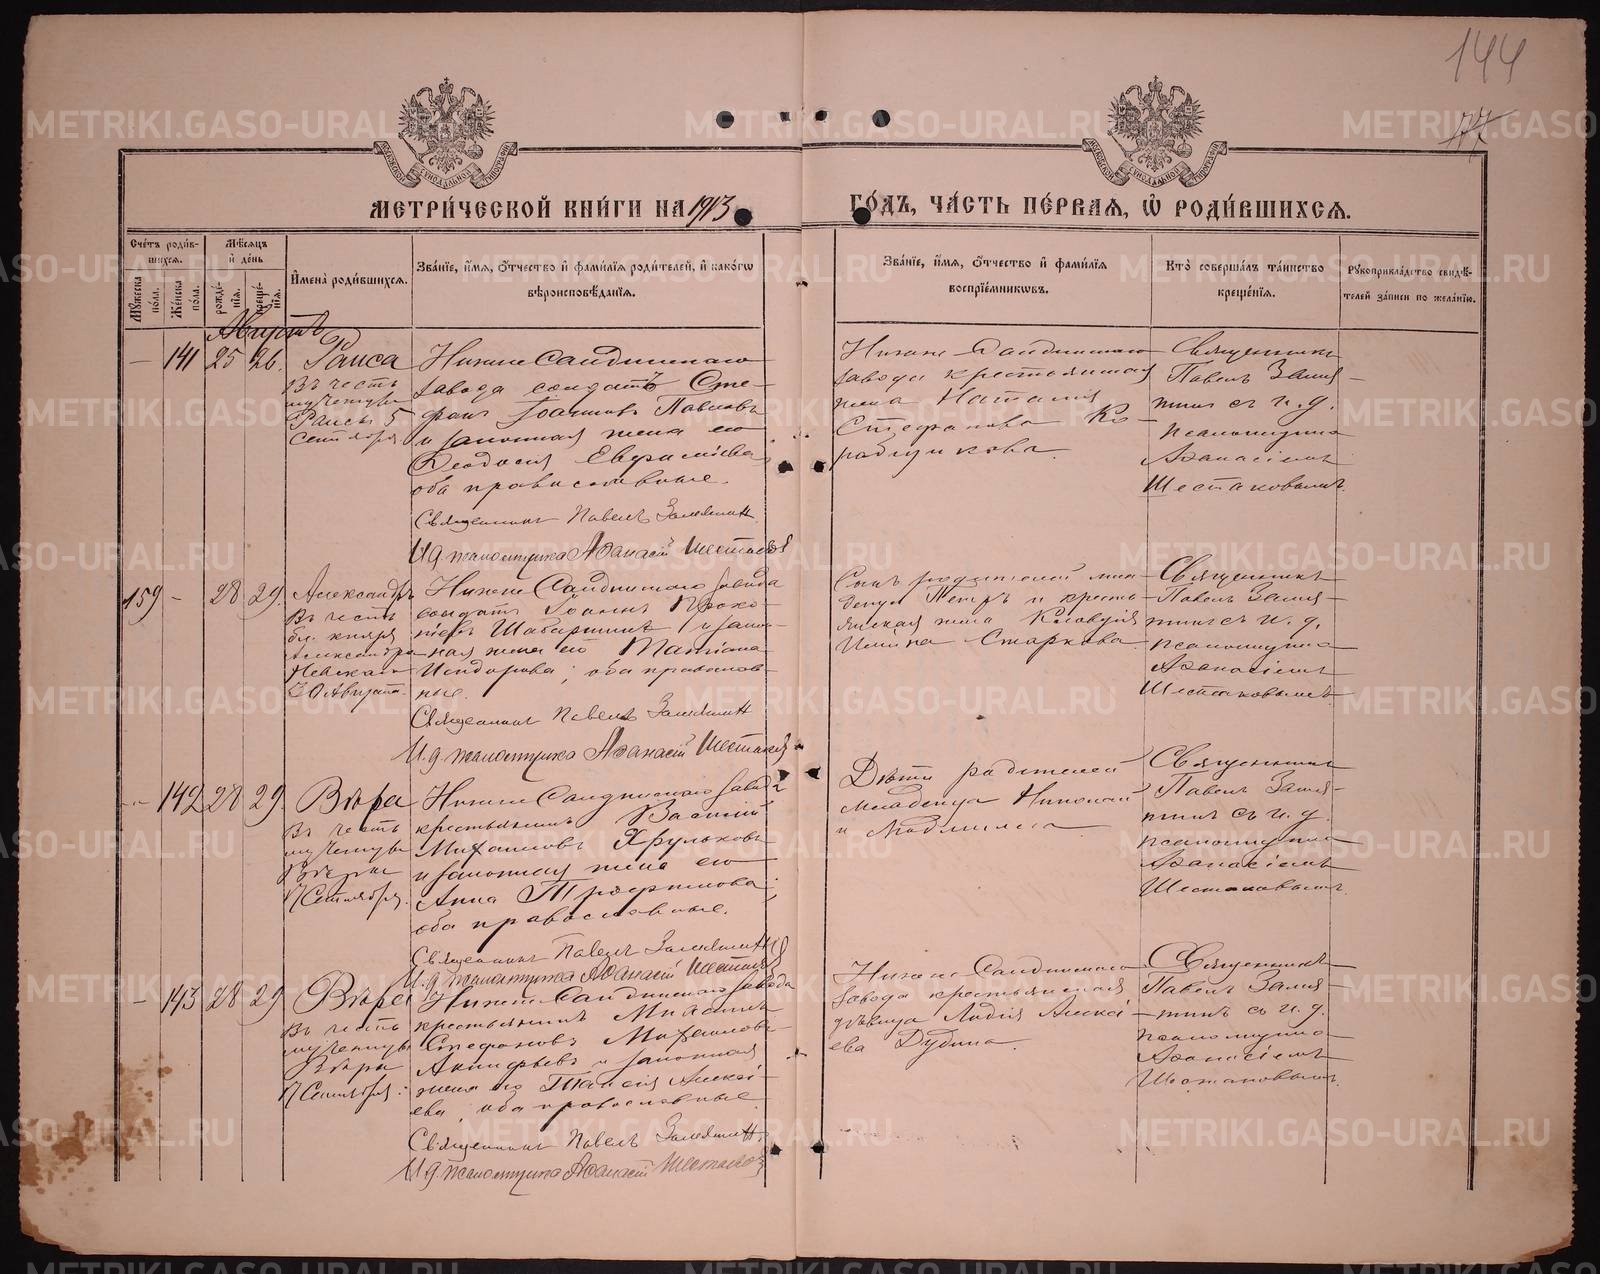 144
177
МЕТРИ́ЧЕСКОЙ КНИ́ГИ НА 1913 ГО́ДЪ, ЧА́СТЬ ПЕ́РВАЯ, Ѡ РОДИ́ВШИХСЯ.
Сче́тъ роди́вшихся.
Му́жеска по́ла.
Же́нска по́ла.
Мѣ́сяцъ и҆ де́нь
рожде́нїя.
креще́нїя.
И҆мена̀ роди́вшихся.
Зва́нїе, и҆́мя, ѻ҆́тчество и҆ фами́лїя роди́телей, и҆ како́гѡ
вѣроисповѣ́данїя.
Зва́нїе, и҆́мя, ѻ҆́тчество и҆ фами́лїя
воспрїе́мникѡвъ.
Кто̀ соверша́лъ та́инство
креще́нїя.
Рꙋкоприкла́дство свидѣ́-
телей за́писи по жела́нїю.
Августъ
— 141 25 26. Раиса
Въ честь
мученицы
Раисы 5
Сентября
Нижне Салдинскаго
завода солдатъ Сте-
фанъ Іоанновъ Павловъ
и законная жена его
Ѳеодосія Евфиміева
оба православные.
Священникъ Павелъ Замятин
И.д. псаломщика Аѳанасій Шестаков
Нижне-Салдинскаго
завода крестьянская
жена Наталія
Стефанова Ко-
робщикова.
Священникъ
Павелъ Замя-
тинъ съ и. д.
псаломщика
Аѳанасіемъ
Шестаковымъ.
159 - 28 29. Александръ
Въ честь
бл. князя
Александра
Невскаго
30 Августа.
Нижне Салдинскаго завода
солдатъ Іоаннъ Проко-
піевъ Шабаршинъ и закон-
ная жена его Татіана
Исидорова; оба православ-
ные.
Священникъ Павелъ Замятин
И.д. псаломщика Аѳанасій Шестаков
Сынъ родителей мла-
денца Петръ и кресть-
янская жена Клавдія
Старкова.
Священникъ
Павелъ Замя-
тинъ съ и. д.
псаломщика
Аѳанасіемъ
Шестаковымъ
- 142 28 29. Вѣра
Въ честь
мученицы
Вѣры
17 Сентября.
Нижне Салдинскаго завода
крестьянинъ Василій
Михаиловъ Хрульковъ
и законная жена его
Анна Трофимова;
оба православные.
Священникъ Павелъ Замятин
И.д. псаломщика Аѳанасій Шестаков
Дѣти родителей
младенца Николай
и Людмила.
Священникъ
Павелъ Замя-
тинъ съ и. д.
псаломщика
Аѳанасіемъ
Шестаковымъ.
- 143 28 29 Вѣра
Въ честь
мученицы
Вѣры
17 Сентября.
Нижне Салдинскаго завода
крестьянинъ
Стефановъ Михаилова-
и законная
жена его Таисія Алексі-
ева, оба православные.
Священникъ Павелъ Замятин
И.д. псаломщика Аѳанасій Шестаков
Нижне Салдинскаго
завода крестьянская
дѣвица Лидія Алексі-
ева Дубина.
Священникъ
Павелъ Замя-
тинъ со и. д.
псаломщика
Аѳанасіемъ
Шестаковымъ.
METRIKI.GASO-URAL.RU